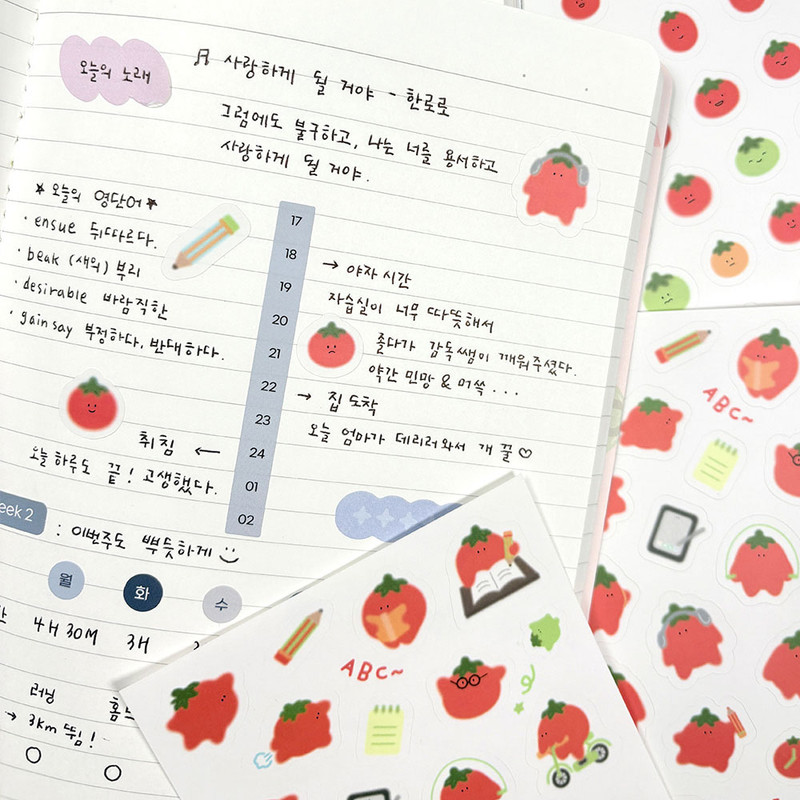 오늘의 노래
♬ 사랑하게 될 거야 - 한로로
그럼에도 불구하고, 나는 너를 용서하고
사랑하게 될 거야.
★ 오늘의 영단어 ★
· ensue 뒤따르다.
· beak (새의) 부리
· desirable 바람직한
· gainsay 부정하다, 반대하다.
17
18
19
20
21
22
23
24
01
02
→ 야자 시간
자습실이 너무 따뜻해서
졸다가 감독쌤이 깨워주셨다.
약간 민망 & 머쓱...
→ 집 도착
오늘 엄마가 데리러와서 개 꿀♡
취침 ←
오늘 하루도 끝! 고생했다.
eek 2
: 이번주도 뿌듯하게
월
화
수
4H 30M
3H
러닝
→ 3km 뜀!
홈
ABC~
ABC~